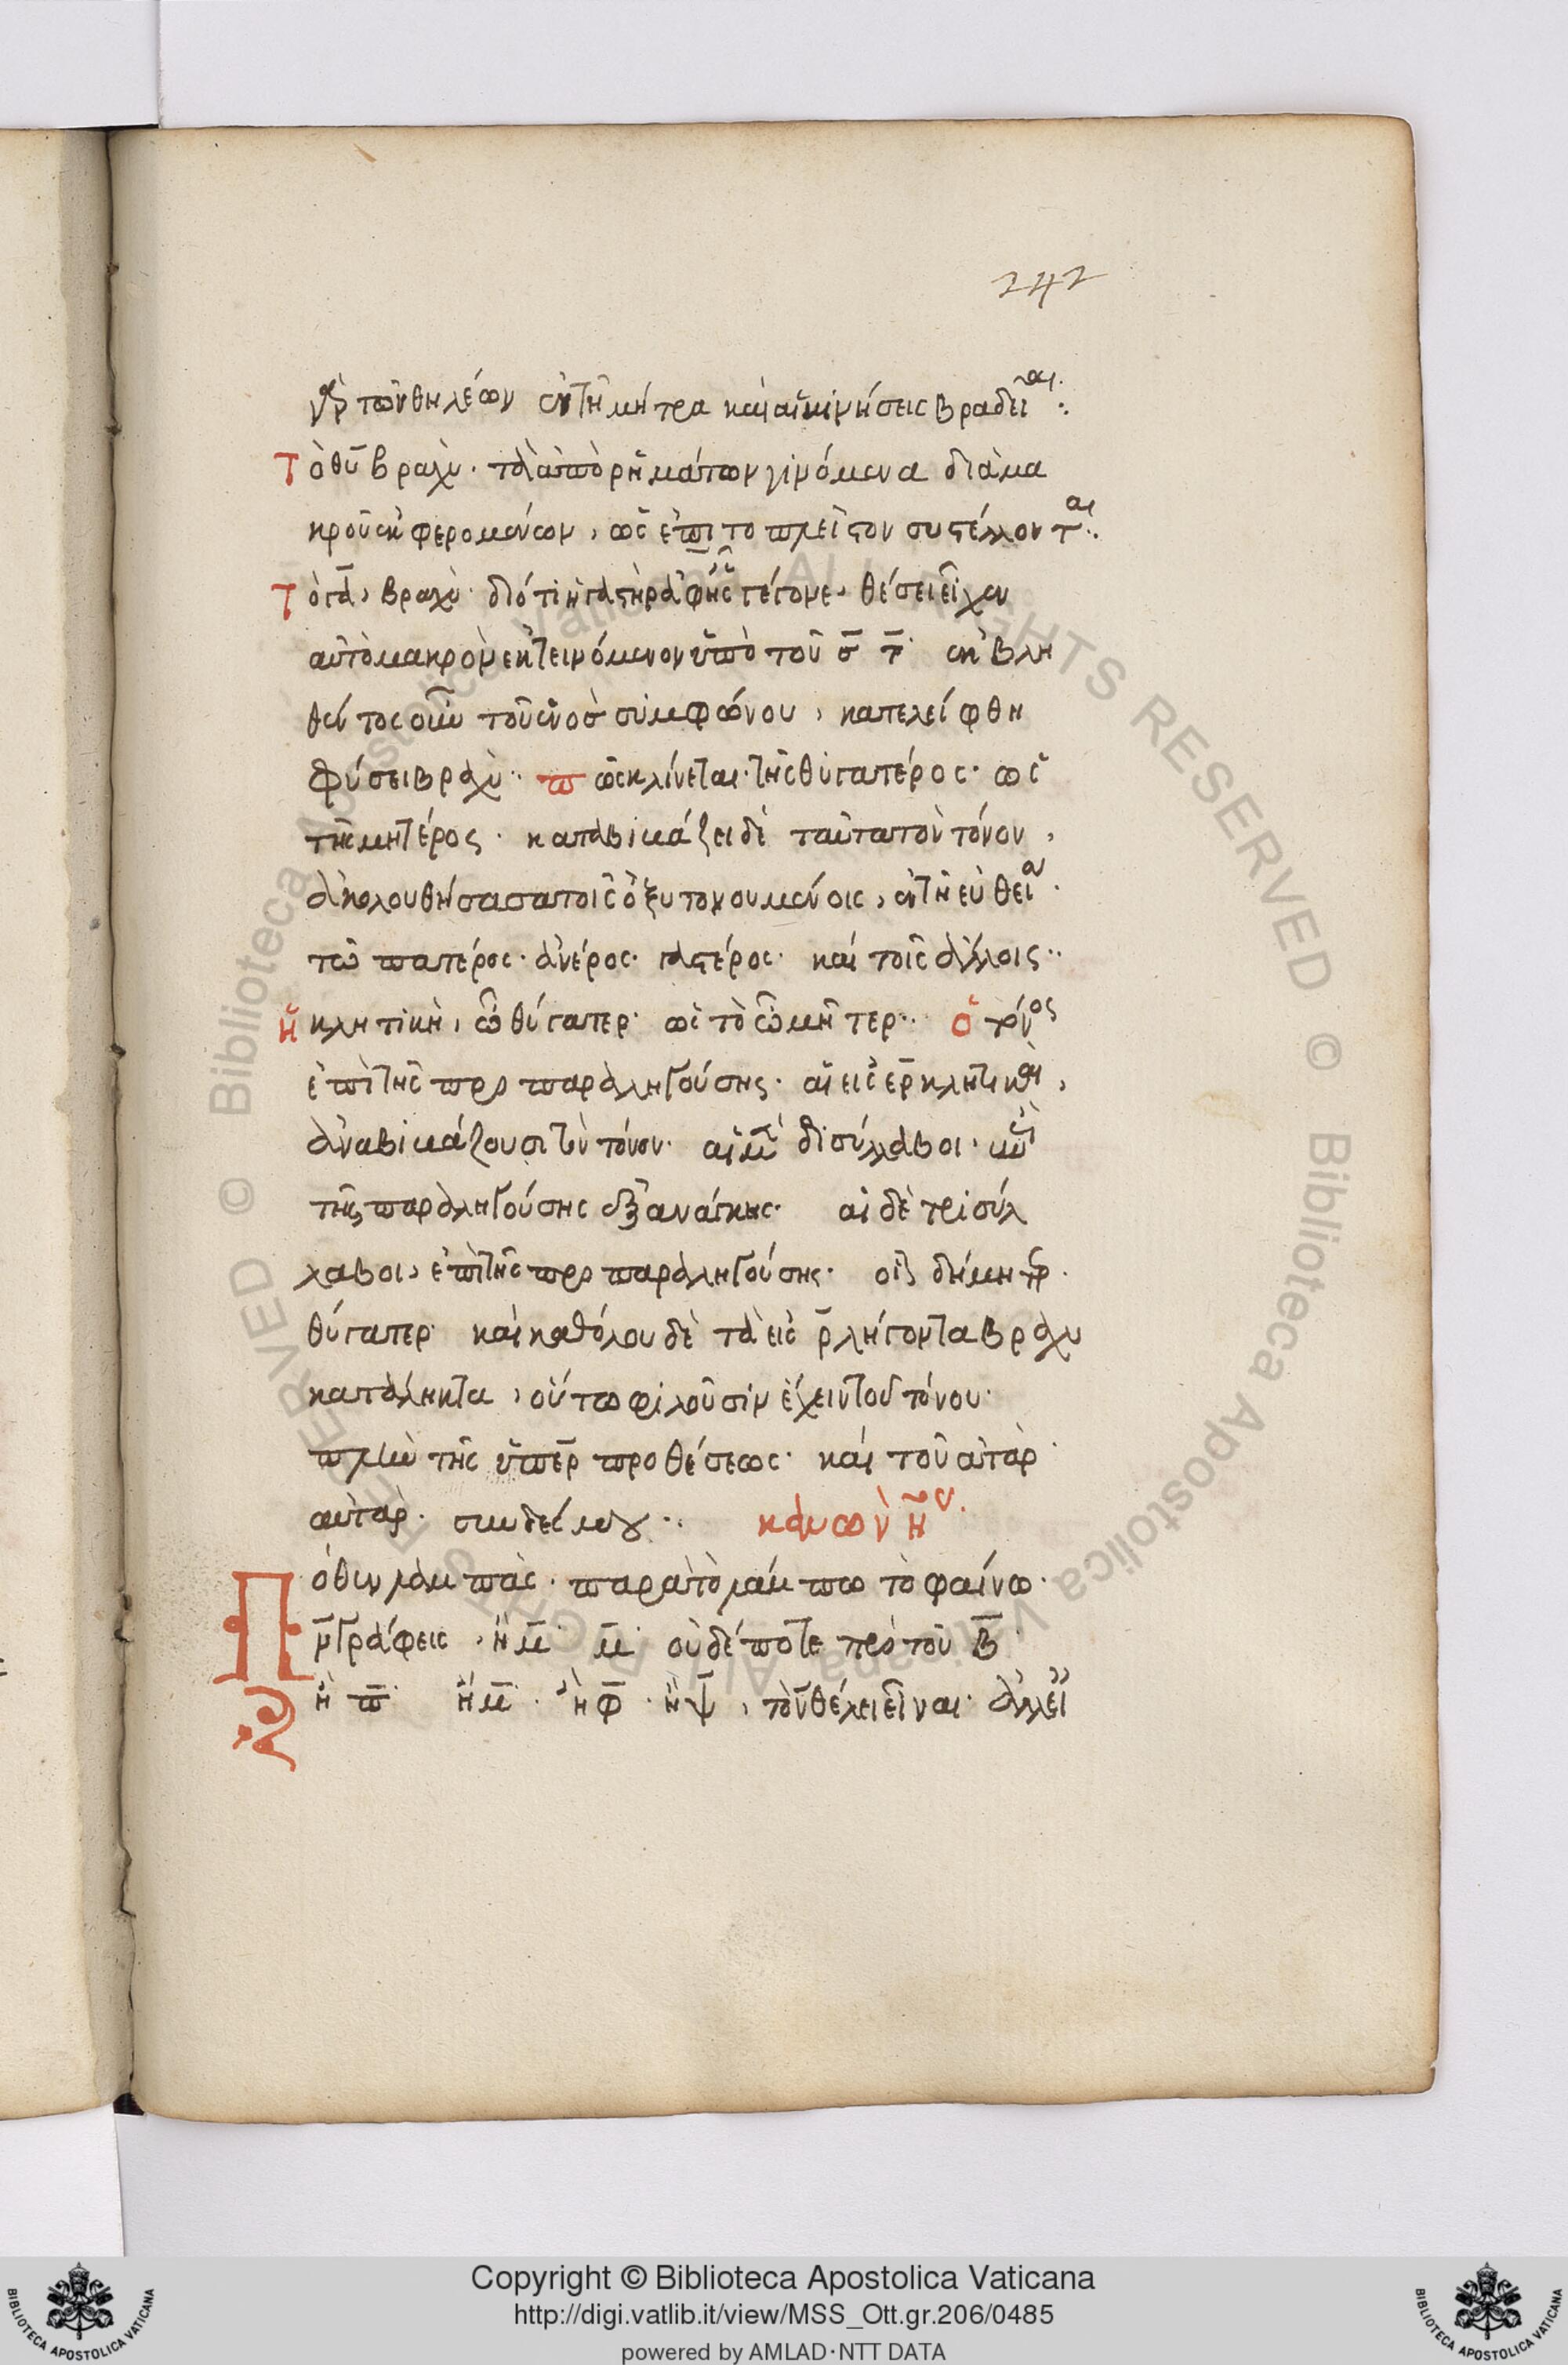 242
γὰρ τῶν θηλέων ἐν τῆ μήτρα καὶ αἱ κινήσεις βραδεῖαι:
Τὸ θυ βραχὺ· τὰ ἀπὸ ρημάτων γινόμενα διὰ μα
κροῦ ἐκφερομένων, ὡς ἐπιτοπλεῖστον συστέλλονται:
Τὸ γα, βραχὺ· διότι ἡ γαστὴρ ἀφ' ἧς γέγονε, θέσει εἶχεν
αὐτὸ μακρὸν ἐκτεινόμενον ὑπὸ τοῦ σ τ· ἐκβλη
θέντος οὖν τοῦ ἑνὸς συμφώνου, κατελείφθη
φύσει βραχὺ·· π ῶς κλίνεται· τῆς θυγατέρος· ὡς
τῆς μητέρος· καταβιβάζει δὲ ταῦτα τὸν τόνον,
ἀκολουθήσασα τοῖς ὀξυτονουμένοις, ἐν τῆ εὐθεία·
τῶ πατέρος· ἀνέρος· γαστέρος· καὶ τοῖς ἄλλοις··
Ἡ κλητικὴ, ὦ θύγατερ· ὡς τὸ ὦ μῆτερ·· ὁ τόνος
ἐπὶ τῆς προπαραληγούσης· αἱ εἰς ερ κλητικαὶ,
ἀναβιβάζουσι τὸν τόνον· αἱ μὲν δισύλλαβοι·
τῆς παραληγούσης ἐξανάγκης· αἱ δὲ τρισύλ
λαβοι, ἐπὶ τῆς προπαραληγούσης· οἷον δήμητερ·
θύγατερ· καὶ καθόλου δὲ τὰ εἰς ρ λήγοντα βραχυ
κατάληκτα, οὕτω φιλοῦσιν ἔχειν τὸν τόνον·
πλὴν τῆς ὑπὲρ προθέσεως· καὶ τοῦ ἀτὰρ·
αὐτὰρ· συνδέσμου·· κανὼν η
Πόθεν λαμπὰς· παρὰ τὸ λάμπω τὸ φαίνω·
μ γράφεις, ἢ μ· μ· οὐδέποτε πρὸ τοῦ β·
ἢ π· ἢ μ· ἢ φ· ἢ ψ, τὸ ν θέλει εἶναι· ἀλλ' εἰ
Copyright © Biblioteca Apostolica Vaticana
http://digi.vatlib.it/view/MSS_Ott.gr.206/0485
powered by AMLAD·NTT DATA